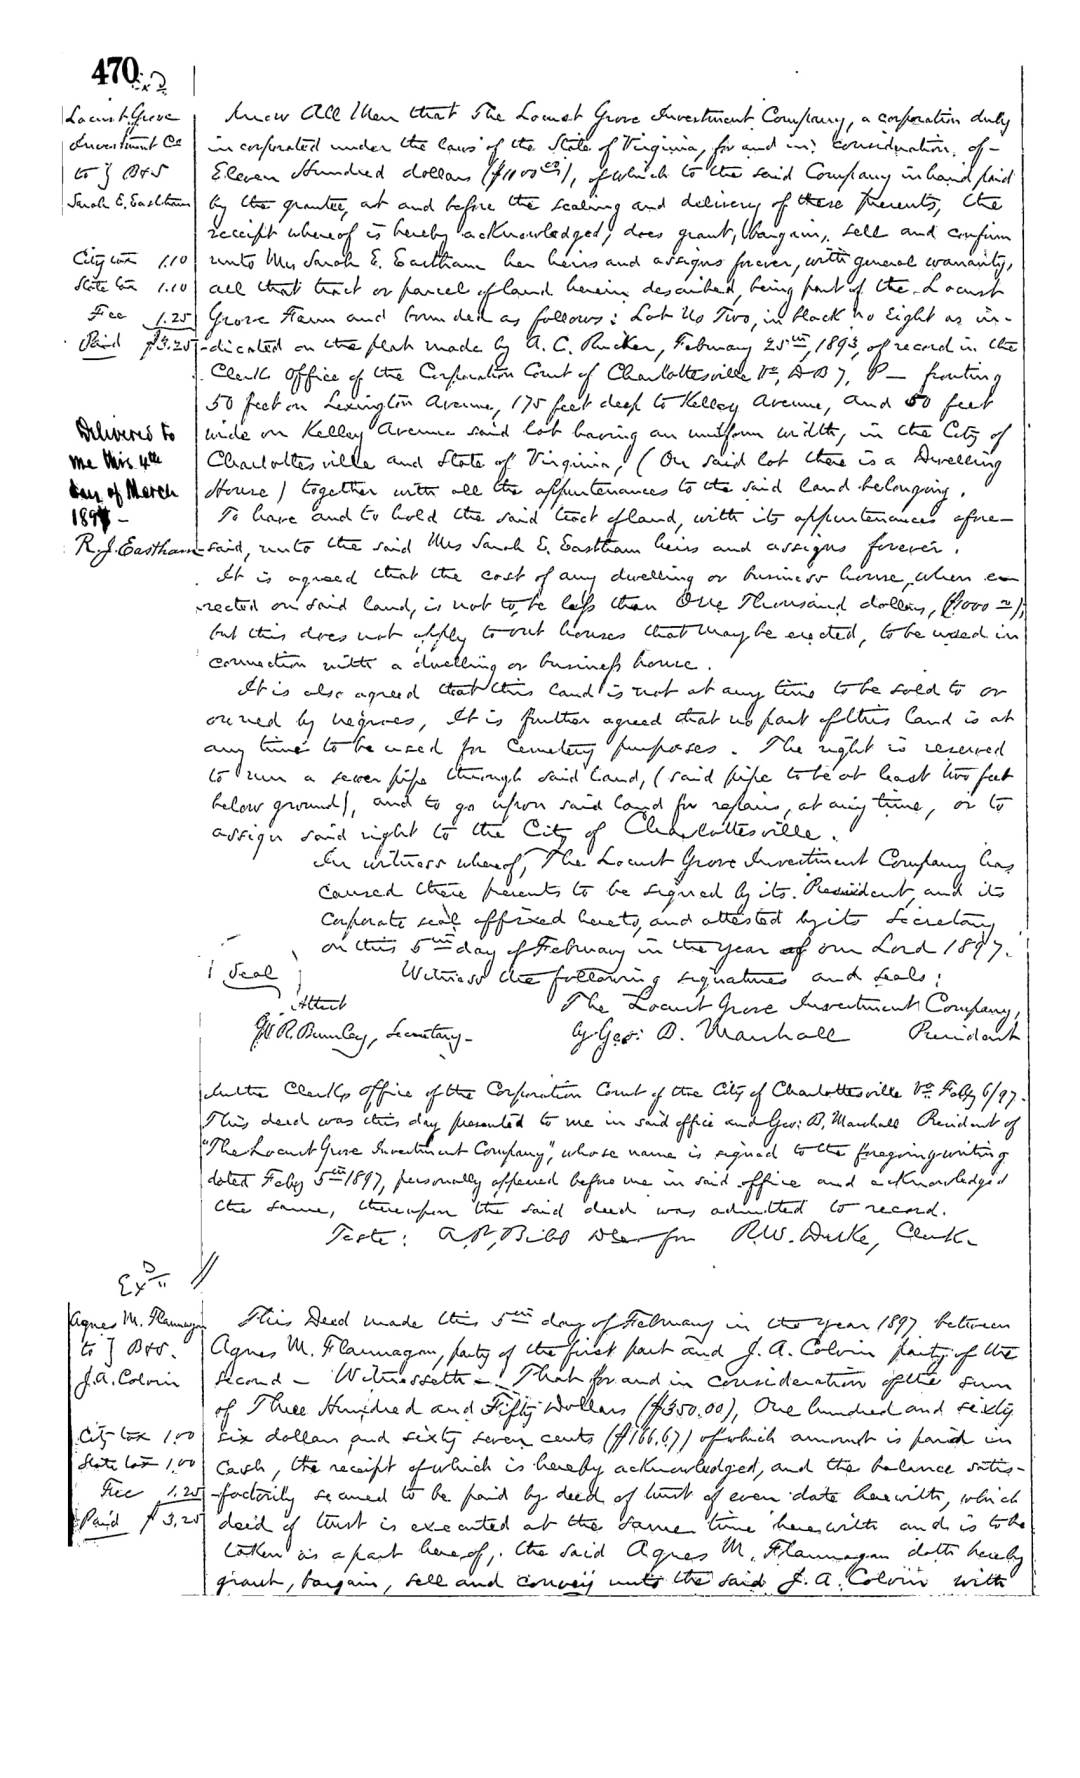 470
Exd
Locust Grove
Investment Co
to } B&S
Sarah E. Eastham
City tax 1.10
State tax 1.10
Fee 1.25
Paid $3.25
Delivered to
me this 4th
day of March
189
R. J. Eastham
Know All Men that The Locust Grove Investment Company, a corporation duly
incorporated under the laws of the State of Virginia, for and in consideration of
Eleven Hundred dollars ($1100 00), of which to the said Company in hand paid
by the grantee, at and before the sealing and delivery of these presents, the
receipt whereof is hereby acknowledged, does grant, bargain, sell and confirm
unto Mrs Sarah E. Eastham her heirs and assigns forever, with general warranty,
all that tract or parcel of land herein described, being part of the Locust
Grove Farm and bounded as follows: Lot No Two, in block no Eight as in-
-dicated on the plat made by A. C. Rucker, February 25th, 1893, of record in the
Clerks Office of the Corporation Court of Charlottesville Va, D B 7, P — fronting
50 feet on Lexington Avenue, 175 feet deep to Kelley Avenue, and 50 feet
wide on Kelley Avenue said lot having an uniform width, in the City of
Charlottesville and State of Virginia, (On said lot there is a Dwelling
House) together with all the appurtenances to the said land belonging.
To have and to hold the said tract of land, with its appurtenances afore-
-said, unto the said Mrs Sarah E. Eastham heirs and assigns forever.
It is agreed that the cost of any dwelling or business house, when e-
rected on said land, is not to be less than One Thousand dollars, ($1000 00),
but this does not apply to out houses that may be erected, to be used in
connection with a dwelling or business house.
It is also agreed that this land is not at any time to be sold to or
owned by negroes, It is further agreed that no part of this land is at
any time to be used for Cemetery purposes. The right is reserved
to run a sewer pipe through said land, (said pipe to be at least two feet
below ground), and to go upon said land for repairs, at any time, or to
assign said right to the City of Charlottesville.
In witness whereof, The Locust Grove Investment Company has
caused these presents to be signed by its President, and its
corporate seal affixed hereto, and attested by its Secretary
on this 5th day of February in the year of our Lord 1897.
Seal
Witness the following signatures and seals:
Attest
The Locust Grove Investment Company,
W. R. Burnley, Secretary-
by Geo: B. Marshall President
In the Clerks Office of the Corporation Court of the City of Charlottesville Va Feby 6/97.
This deed was this day presented to me in said office and Geo: B. Marshall President of
"The Locust Grove Investment Company", whose name is signed to the foregoing writing
dated Feby 5th 1897, personally appeared before me in said office and acknowledged
the same, thereupon the said deed was admitted to record.
Teste: A. R. Bibb for R.W. Duke, Clerk.
Exd
Agnes M. Flannagan
to } B&S.
J. A. Colvin
City tax 1.00
State tax 1.00
Fee 1.25
Paid $3.25
This Deed made this 5th day of February in the year 1897 between
Agnes M. Flannagan, party of the first part and J. A. Colvin party of the
second – Witnesseth – That for and in consideration of the sum
of Three Hundred and Fifty Dollars ($350.00), One hundred and sixty
six dollars and sixty seven cents ($166.67) of which amount is paid in
cash, the receipt of which is hereby acknowledged, and the balance satis-
-factorily secured to be paid by deed of trust of even date herewith, which
deed of trust is executed at the same time herewith and is to be
taken as a part hereof, the said Agnes M. Flannagan doth hereby
grant, bargain, sell and convey unto the said J. A. Colvin with